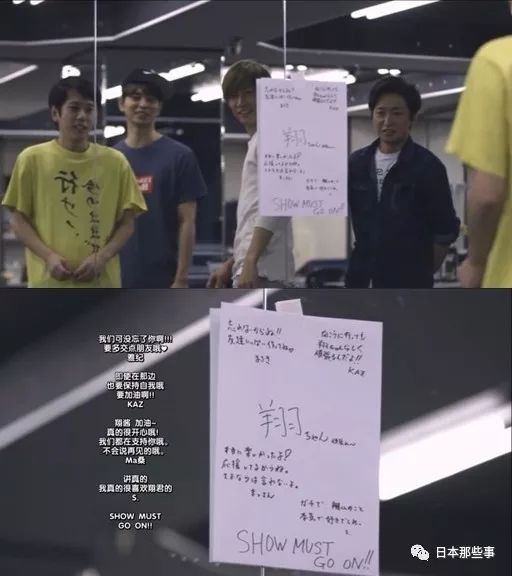 忘れないからね!!
友達いっぱい作ってねっ
まさき
むこうに行っても
頑張るんだよ!!
KAZ
翔
ちゃん
本当に楽しかったよ!
応援してるからね。
さよならは言わないよ。
まっさん
ガチで
本気で好きでした。
SHOW MUST
GO ON!!
我们可没忘了你啊!!!
要多交点朋友哦♥
雅纪
即使在那边
也要保持自我哦
要加油啊!!
KAZ
翔酱 加油~
真的很开心哦!
我们都在支持你哦。
不会说再见的哦。
Ma桑
讲真的
我真的很喜欢翔君的
S.
SHOW MUST
GO ON!!
日本那些事